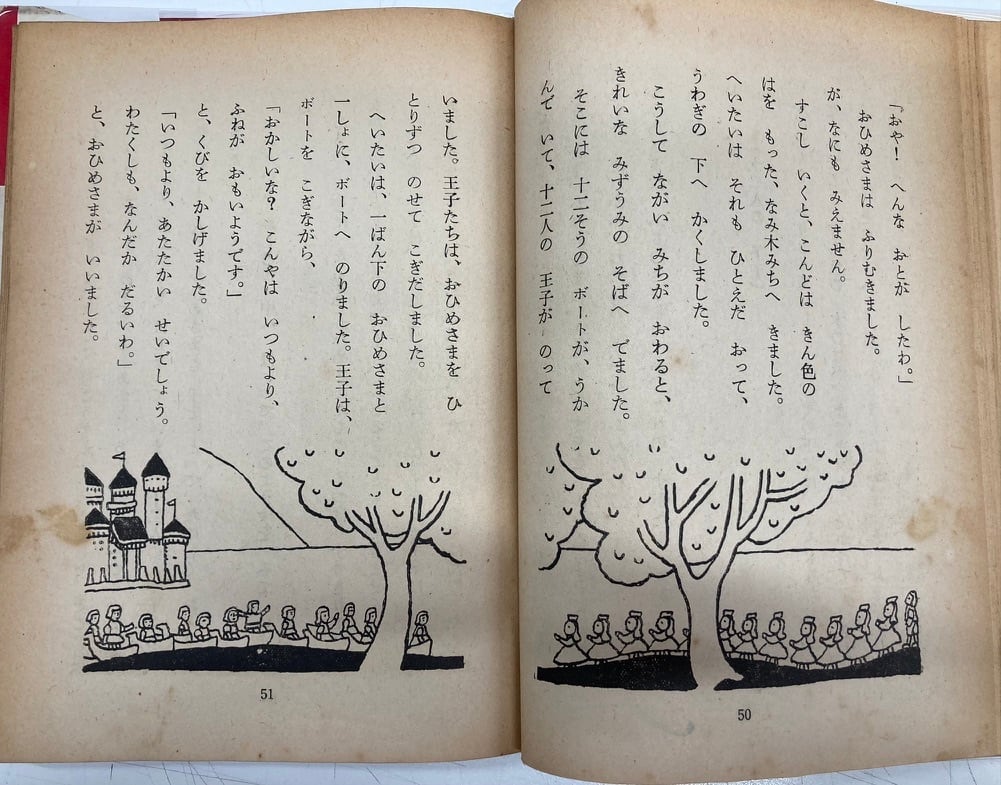 「おや! へんな おとが したわ。」
おひめさまは ふりむきました。
が、なにも みえません。
すこし いくと、こんどは きん色の
はを もった、なみ木みちへ きました。
へいたいは それも ひとえだ おって、
うわぎの 下へ かくしました。
こうして ながい みちが おわると、
きれいな みずうみの そばへ でました。
そこには 十二そうの ボートが、うか
んで いて、十二人の 王子が のって
50
いました。王子たちは、おひめさまを ひ
とりずつ のせて こぎだしました。
へいたいは、一ばん下の おひめさまと
一しょに、ボートへ のりました。王子は、
ボートを こぎながら、
「おかしいな? こんやは いつもより、
ふねが おもいようです。」
と、くびを かしげました。
「いつもより、あたたかい せいでしょう。
わたくしも、なんだか だるいわ。」
と、おひめさまが いいました。
51